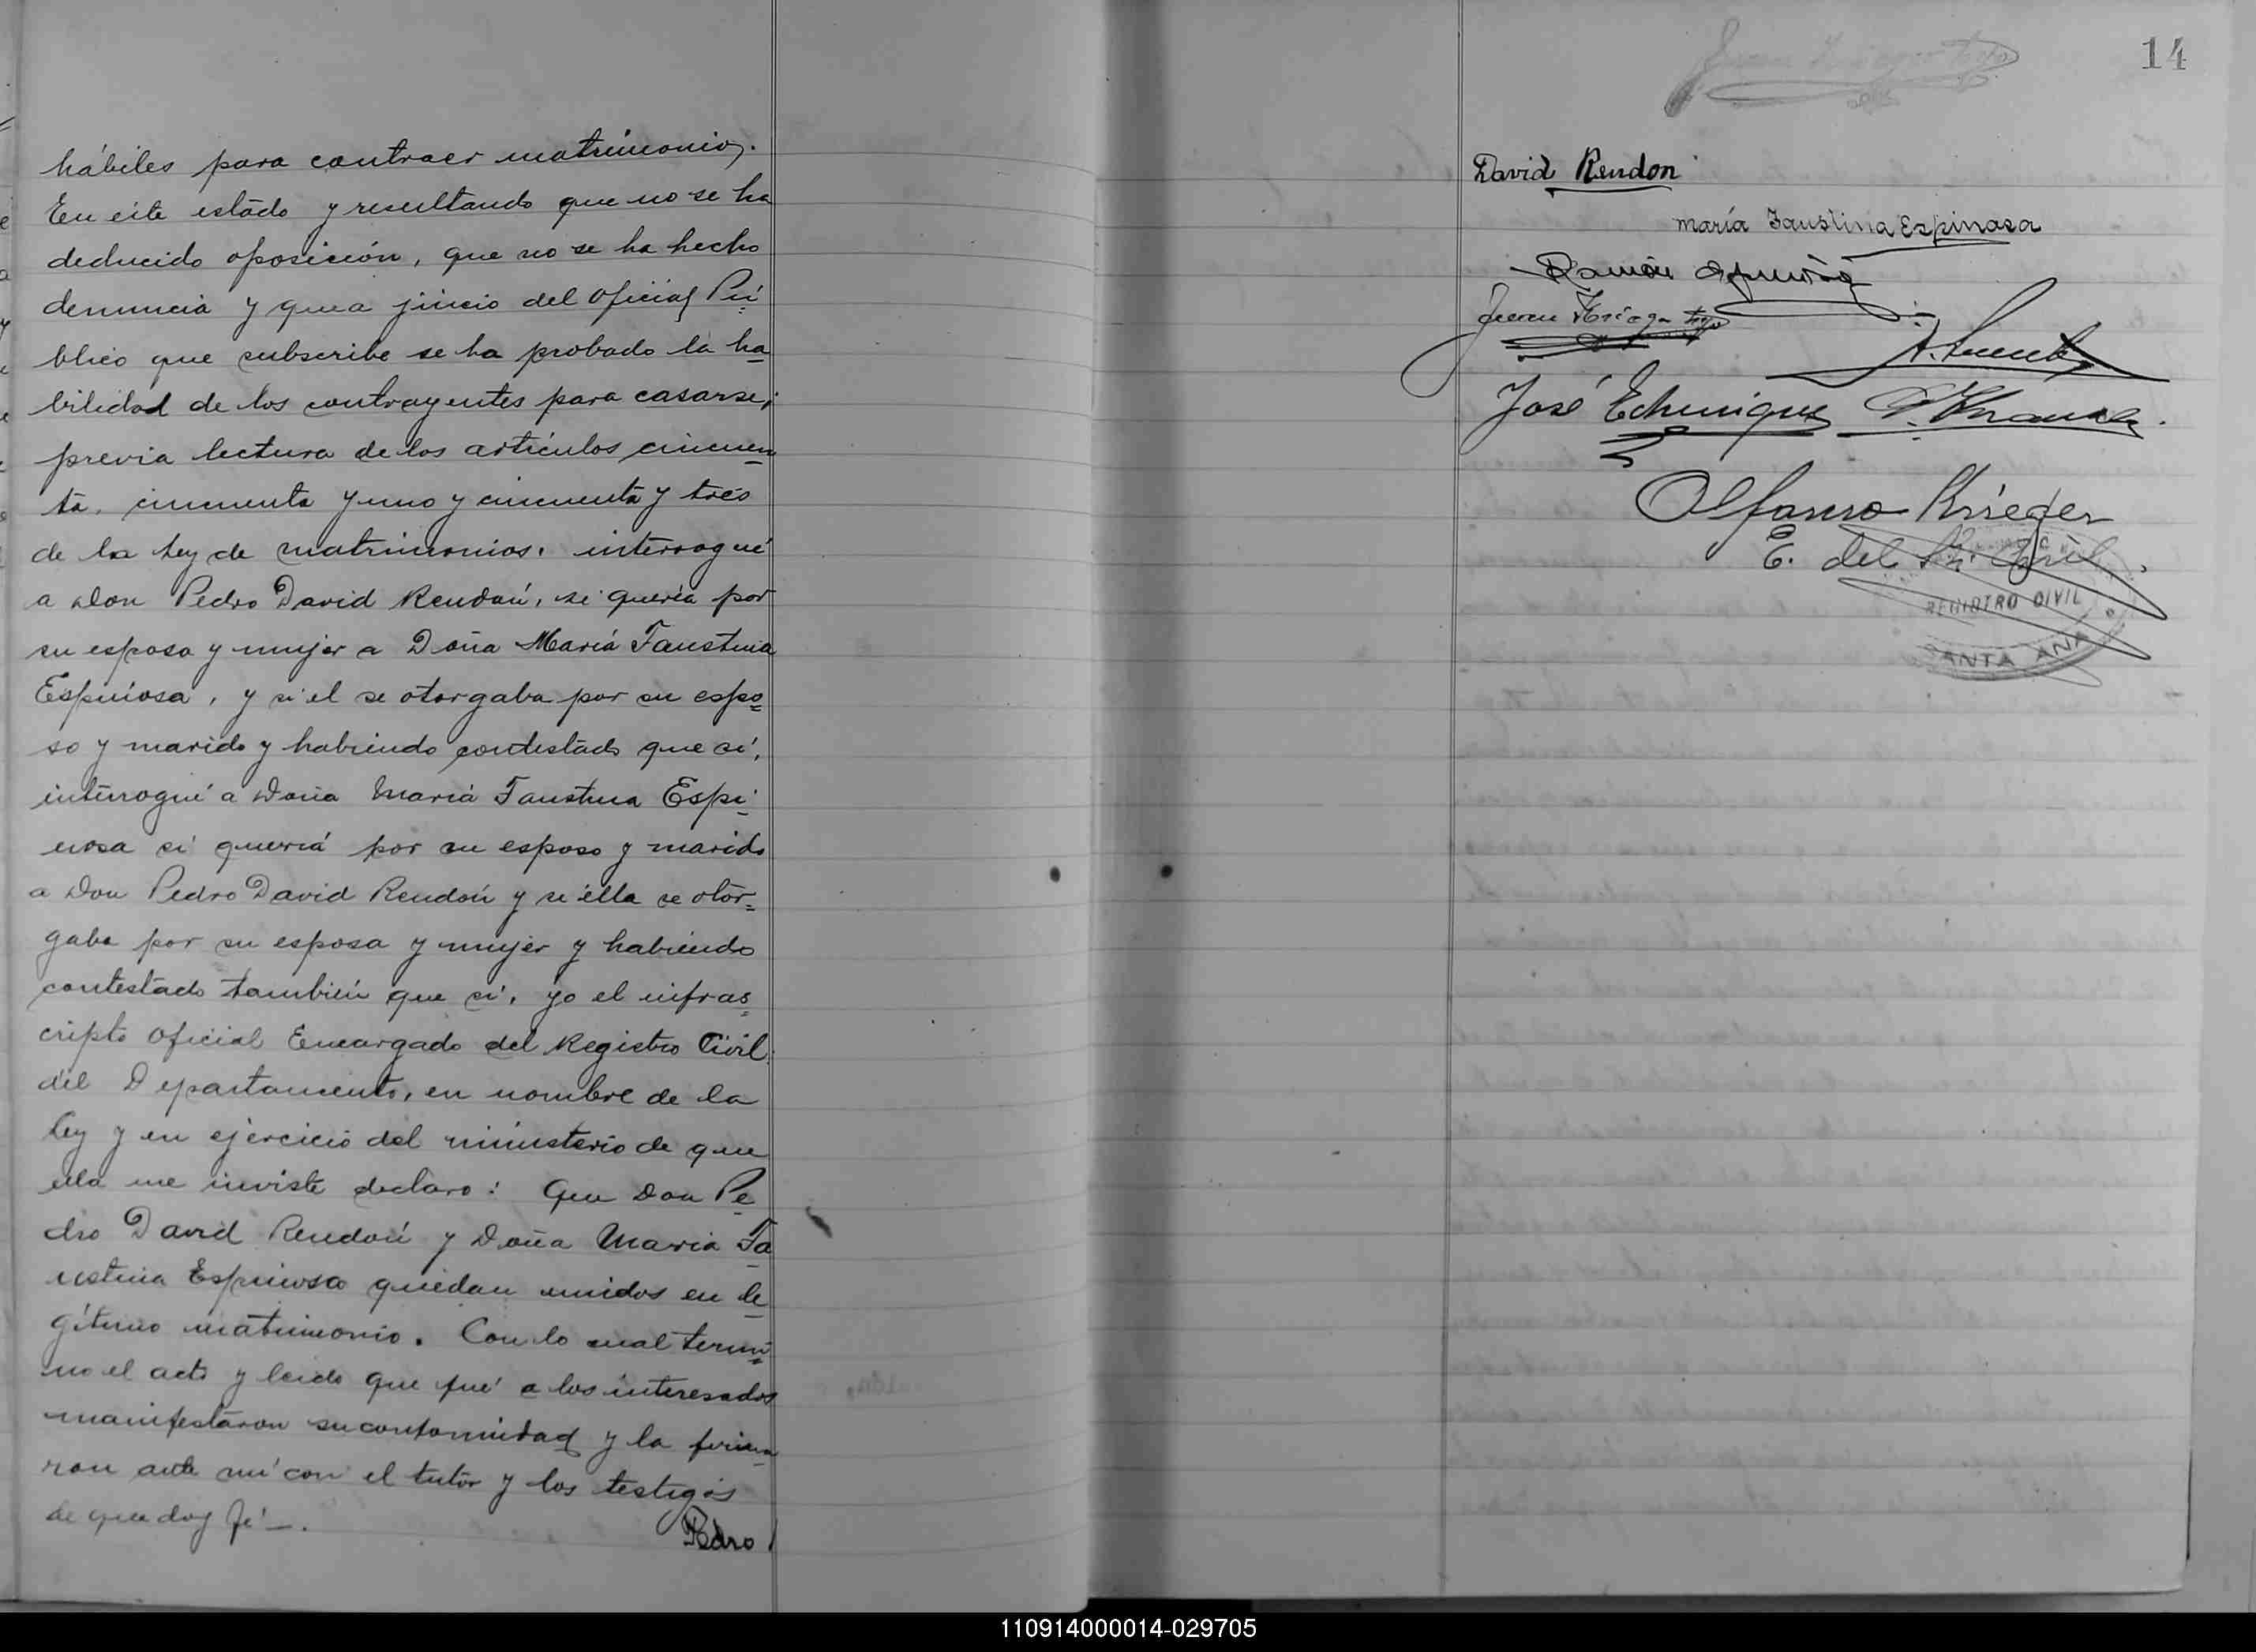 hábiles para contraer matrimonio.
En este estado y resultando que no se ha
deducido oposición, que no se ha hecho
denuncia y que a juicio del Oficial Pú-
blico que subscribe se ha probado la ha=
bilidad de los contrayentes para casarse,
previa lectura de los artículos cincuen=
ta, cincuenta y uno y cincuenta y tres
de la Ley de matrimonios, interrogué
a Don Pedro David Rendón, si quería por
su esposa y mujer a Doña María Faustina
Espinosa, y si el se otorgaba por su espo=
so y marido y habiendo contestado que sí,
interrogué a Doña María Faustina Espi-
nosa si quería por su esposo y marido
a Don Pedro David Rendón y si élla se otor=
gaba por su esposa y mujer y habiendo
contestado también que sí, yo el infras=
cripto Oficial Encargado del Registro Civil
del Departamento, en nombre de la
Ley y en ejercicio del ministerio de que
ella me inviste declaro: Que Don Pe-
dro David Rendón y Doña María Fa-
ustina Espinosa quedan unidos en le-
gítimo matrimonio. Con lo cual termi=
nó el acto y leído que fué a los interesados
manifestaron su conformidad y la firma-
ron ante mí con el tutor y los testigos
de que doy fé—.
Pedro
14
David Rendon
maría Faustina Espinosa
Ramón
Juan
José Echenique
Krieger
E. del R. Civil
REGISTRO CIVIL
SANTA ANA
110914000014-029705